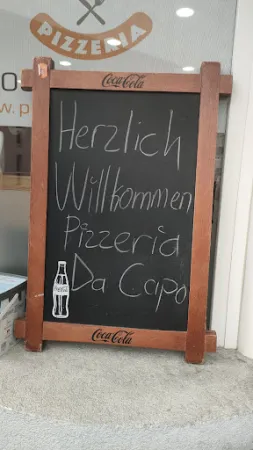 PIZZERIA
Coca-Cola
Herzlich
Willkommen
Pizzeria
Da Capo
Coca-Cola